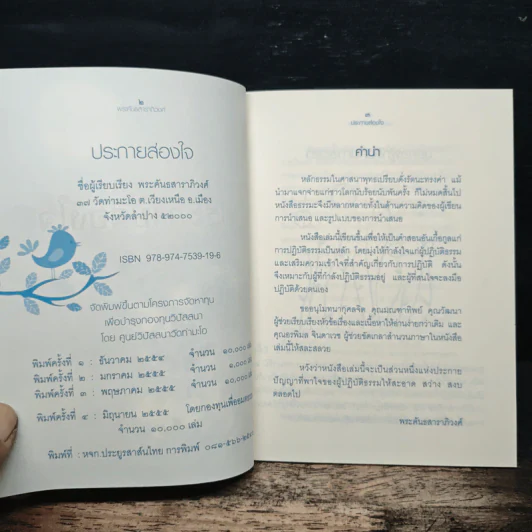 ๒
พระคันธสาราภิวงศ์
ประกายส่องใจ
ชื่อผู้เรียบเรียง พระคันธสาราภิวงศ์
๓๗ วัดท่ามะโอ ต.เวียงเหนือ อ.เมือง
จังหวัดลำปาง ๕๒๐๐๐
ISBN 978-974-7539-19-6
จัดพิมพ์ขึ้นตามโครงการจัดหาทุน
เพื่อบำรุงกองทุนวิปัสสนา
โดย ศูนย์วิปัสสนาวัดท่ามะโอ
พิมพ์ครั้งที่ ๑ : ธันวาคม ๒๕๕๔ จำนวน ๑๐,๐๐๐ เล่ม
พิมพ์ครั้งที่ ๒ : มกราคม ๒๕๕๕ จำนวน ๑,๐๐๐
พิมพ์ครั้งที่ ๓ : พฤษภาคม ๒๕๕๕ จำนวน ๑๐,๐๐๐
พิมพ์ครั้งที่ ๔ : มิถุนายน ๒๕๕๕ โดยกองทุนเพื่อ
จำนวน ๑๐,๐๐๐ เล่ม
พิมพ์ที่ : หจก.ประยูรสาส์นไทย การพิมพ์
ประกายส่องใจ
คำนำ
หลักธรรมในศาสนาพุทธเปรียบดั่งรัตนะทรงค่า แม้
นำมาแจกจ่ายแก่ชาวโลกนับร้อยนับพันครั้ง ก็ไม่หมดสิ้นไป
หนังสือธรรมะจึงมีหลากหลายทั้งในด้านความคิดของผู้เขียน
การนำเสนอ และรูปแบบของการนำเสนอ
หนังสือเล่มนี้เขียนขึ้นเพื่อให้เป็นคำสอนอันเกื้อกูลแก่
การปฏิบัติธรรมเป็นหลัก โดยมุ่งให้กำลังใจแก่ผู้ปฏิบัติธรรม
และเสริมความเข้าใจที่สำคัญเกี่ยวกับการปฏิบัติ ดังนั้น
จึงเหมาะกับผู้ที่กำลังปฏิบัติธรรมอยู่ และผู้ที่สนใจจะลงมือ
ปฏิบัติด้วยตนเอง
ขออนุโมทนากุศลจิต คุณมณฑาทิพย์ คุณวัฒนา
ผู้ช่วยเรียบเรียงหัวข้อเรื่องและเนื้อหาให้อ่านง่ายกว่าเดิม และ
คุณอรพิมล จินดาเวช ผู้ช่วยขัดเกลาสำนวนภาษาในหนังสือ
เล่มนี้ให้สละสลวย
หวังว่าหนังสือเล่มนี้จะเป็นส่วนหนึ่งแห่งประกาย
ปัญญาที่พาใจของผู้ปฏิบัติธรรมให้สะอาด สว่าง สงบ
ตลอดไป
พระคันธสาราภิวงศ์